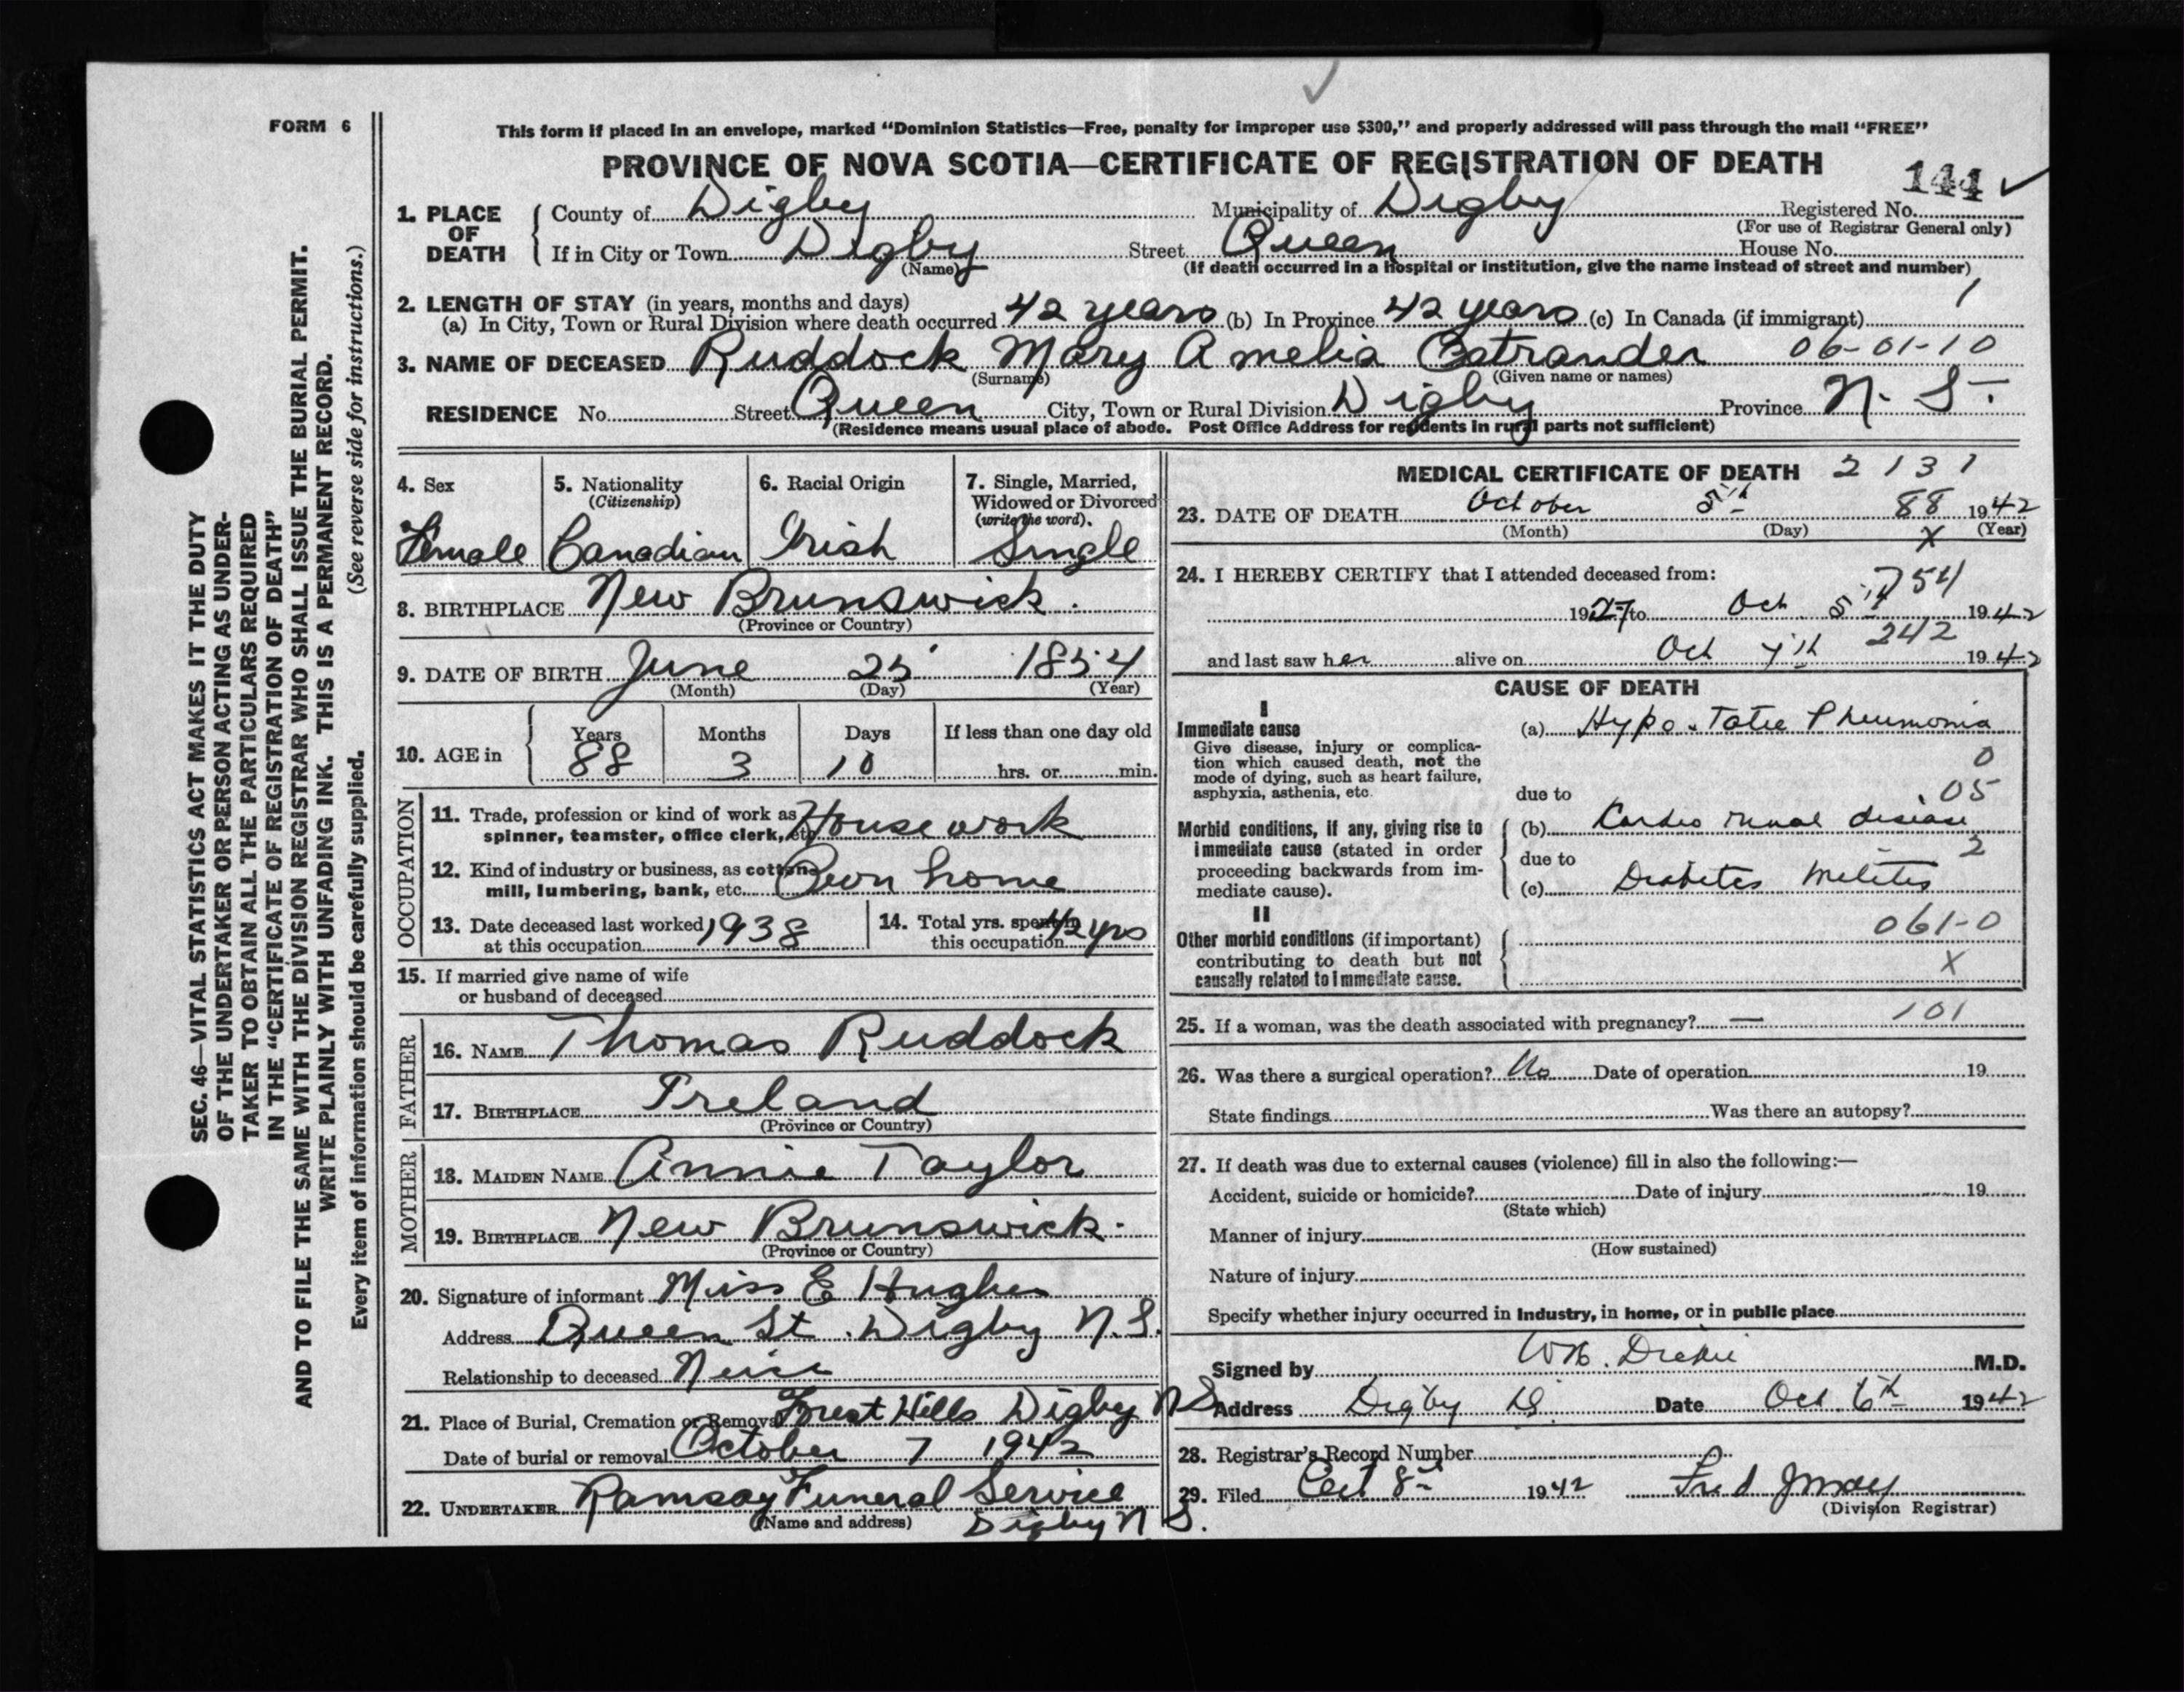 FORM 6
SEC. 46—VITAL STATISTICS ACT MAKES IT THE DUTY
OF THE UNDERTAKER OR PERSON ACTING AS UNDER-
TAKER TO OBTAIN ALL THE PARTICULARS REQUIRED
IN THE "CERTIFICATE OF REGISTRATION OF DEATH"
AND TO FILE THE SAME WITH THE DIVISION REGISTRAR WHO SHALL ISSUE THE BURIAL PERMIT.
WRITE PLAINLY WITH UNFADING INK. THIS IS A PERMANENT RECORD.
Every item of information should be carefully supplied. (See reverse side for instructions.)
This form if placed in an envelope, marked "Dominion Statistics—Free, penalty for improper use $300," and properly addressed will pass through the mail "FREE"
PROVINCE OF NOVA SCOTIA—CERTIFICATE OF REGISTRATION OF DEATH
144
1. PLACE OF DEATH
County of Digby Municipality of Digby Registered No.
(For use of Registrar General only)
If in City or Town Digby Street Queen House No.
(Name) (If death occurred in a hospital or institution, give the name instead of street and number)
2. LENGTH OF STAY (in years, months and days) 1
(a) In City, Town or Rural Division where death occurred 42 years (b) In Province 42 years (c) In Canada (if immigrant)
3. NAME OF DECEASED Ruddock Mary Amelia Ostrander 06-01-10
(Surname) (Given name or names)
RESIDENCE No. Street Queen City, Town or Rural Division Digby Province N. S.
(Residence means usual place of abode. Post Office Address for residents in rural parts not sufficient)
4. Sex
Female
5. Nationality
(Citizenship)
Canadian
6. Racial Origin
Irish
7. Single, Married,
Widowed or Divorced
(write the word).
Single
8. BIRTHPLACE New Brunswick.
(Province or Country)
9. DATE OF BIRTH June 25 1854
(Month) (Day) (Year)
10. AGE in Years Months Days If less than one day old
88 3 10 hrs. or min.
OCCUPATION
11. Trade, profession or kind of work as
spinner, teamster, office clerk, etc. House work
12. Kind of industry or business, as cotton
mill, lumbering, bank, etc. Own home
13. Date deceased last worked
at this occupation 1938
14. Total yrs. spent in
this occupation 42 yrs
15. If married give name of wife
or husband of deceased
FATHER
16. NAME Thomas Ruddock
17. BIRTHPLACE Ireland
(Province or Country)
MOTHER
18. MAIDEN NAME Annie Taylor
19. BIRTHPLACE New Brunswick.
(Province or Country)
20. Signature of informant Miss E Hughes
Address Queen St. Digby N.S.
Relationship to deceased Neice
21. Place of Burial, Cremation or Removal Forest Hills Digby N S
Date of burial or removal October 7 1942
22. UNDERTAKER Ramsay Funeral Service
(Name and address) Digby N S.
MEDICAL CERTIFICATE OF DEATH 2131
23. DATE OF DEATH October 5th 88 1942
(Month) (Day) X (Year)
24. I HEREBY CERTIFY that I attended deceased from:
754
1927 to Oct 5th 1942
242
and last saw her alive on Oct 4th 1942
CAUSE OF DEATH
I
Immediate cause
Give disease, injury or complica-
tion which caused death, not the
mode of dying, such as heart failure,
asphyxia, asthenia, etc.
(a) Hypo-Static Pneumonia
0
due to 05
Morbid conditions, if any, giving rise to
immediate cause (stated in order
proceeding backwards from im-
mediate cause).
(b) Cardio renal disease
due to 2
(c) Diabetes Melitis
II
Other morbid conditions (if important)
contributing to death but not
causally related to immediate cause.
061-0
X
25. If a woman, was the death associated with pregnancy? — 101
26. Was there a surgical operation? No Date of operation 19
State findings Was there an autopsy?
27. If death was due to external causes (violence) fill in also the following:—
Accident, suicide or homicide? Date of injury 19
(State which)
Manner of injury
(How sustained)
Nature of injury
Specify whether injury occurred in industry, in home, or in public place
Signed by M.D.
Address Digby Date Oct. 6th 1942
28. Registrar's Record Number
29. Filed Oct 8th 1942 Fred
(Division Registrar)